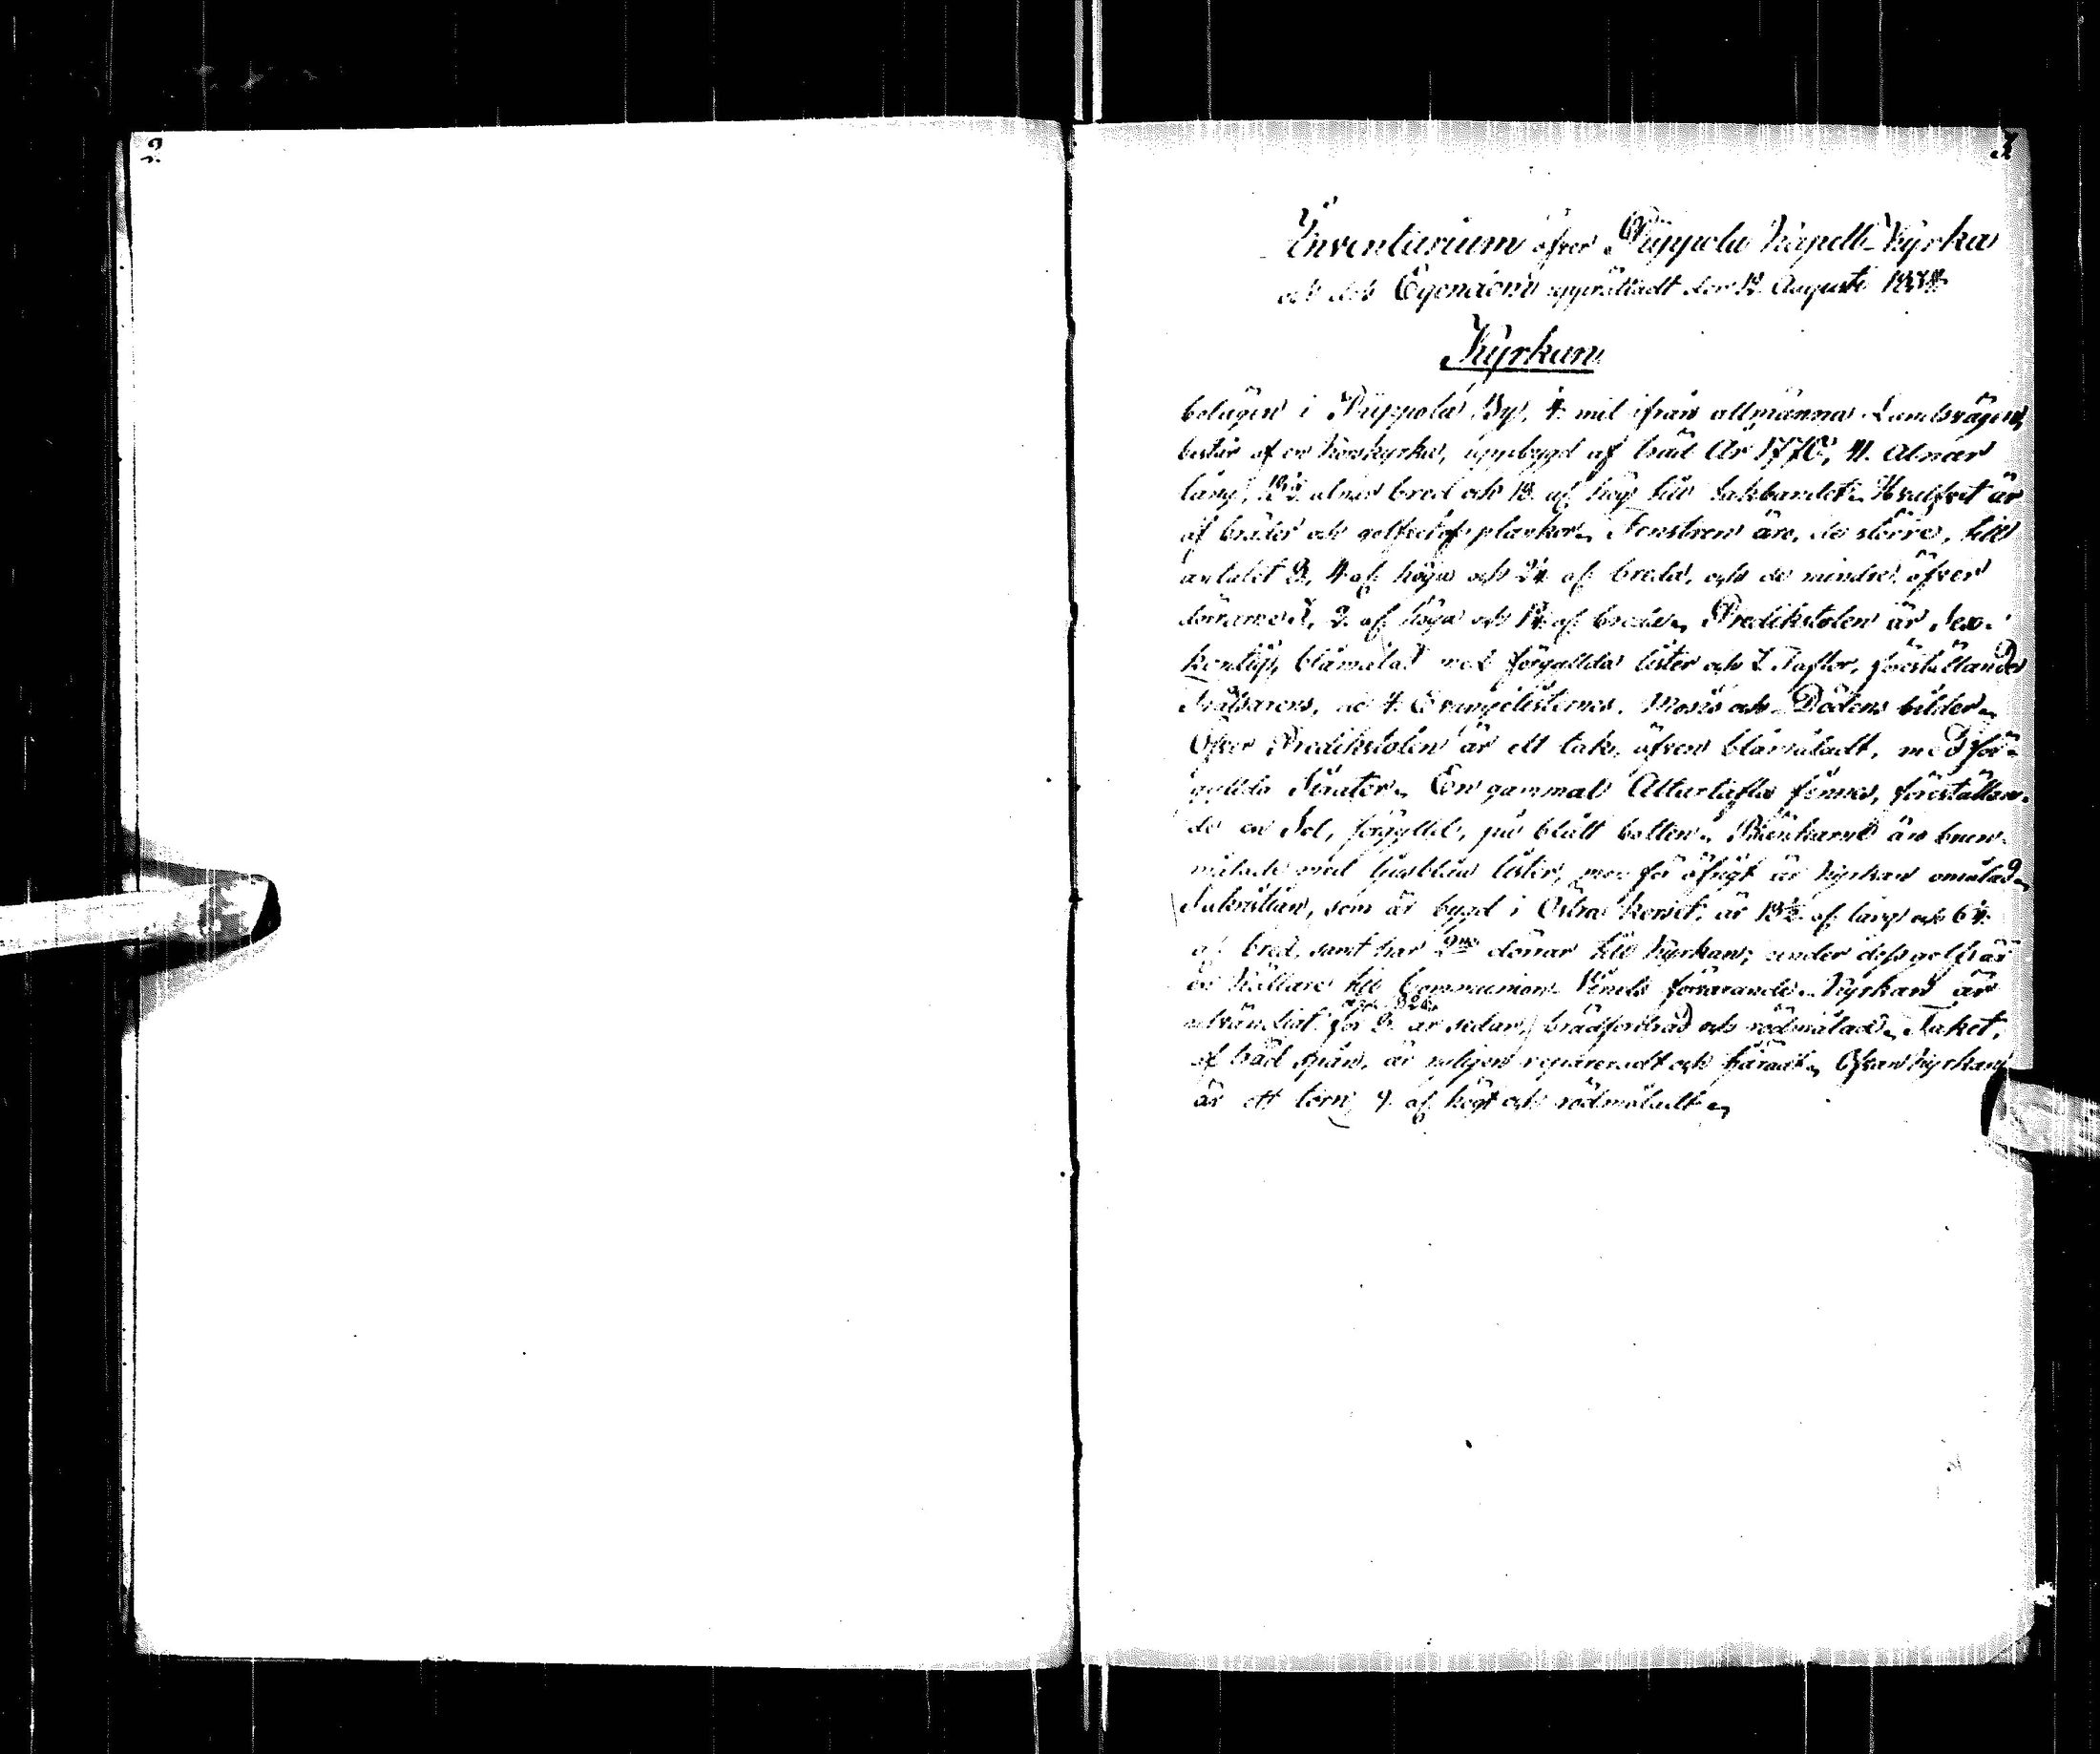 2
3
Inventarium öfver Pippola Kapells Kyrka
och dess Egendom upprättadt den 18 Augusti 1834
Kyrkan
belägen i Pippola By, 4 mil ifrån allmänna Landsvägen,
består af en korskyrka, uppbygd af träd År 1770, 41. Alnar
lång, alnar bred och al: hög till takbandet. Hvalfvet är
af bräder och golfvet af plankor. Fenstren äro, de större, till
antalet 9, 4 al: höga och 2¼ al: breda, och de mindre öfver
dörrarne 3, 2 al: höga och al: breda. Predikstolen är Sex-
kantig, blåmålad med förgyllda lister och 7 Taflor, föreställande
Frälsarens, de 4 Evangelisternes, Mosis och Dödens bilder.
Öfver Predikstolen är ett tak, äfven blåmåladt, med för-
gyllda Sirater. En gammal Altartafla finnes, föreställan-
de en Sol, förgylld, på blått botten. Bänkarne äro brun-
målade med ljusblåa lister, men för öfrigt är kyrkan omålad.
Sakristian, som är bygd i Östra korset, är 13½ al: lång och 6¼
al: bred, samt har 2ne dörrar till kyrkan; under dess golf är
en källare till Communion Vinets förvarande. Kyrkan är
utvändigt för år sedan, brädfodrad och rödmålad. Taket,
af träd spån, är nyligen repareradt och tjäradt. Ofvan kyrkan
är ett torn, 9 al: högt och rödmåladt.